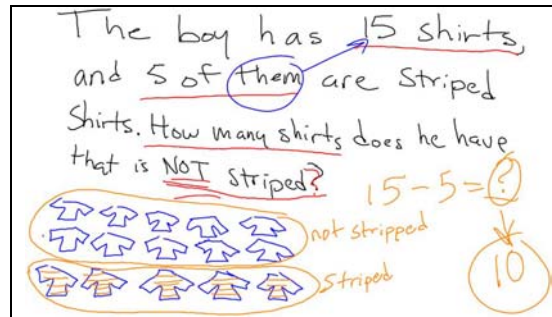 The boy has 15 shirts,
and 5 of them are striped
shirts. How many shirts does he have
that is NOT striped?
15 - 5 = ?
not stripped
10
striped